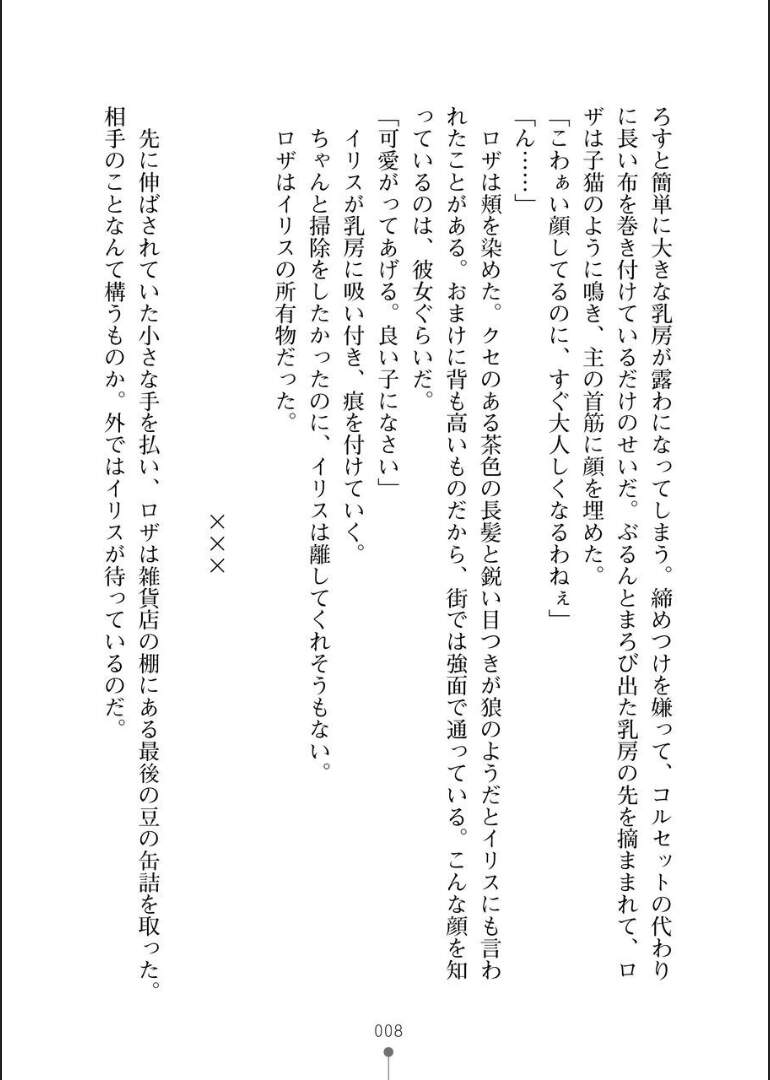 ろすと簡単に大きな乳房が露わになってしまう。締めつけを嫌って、コルセットの代わり
に長い布を巻き付けているだけのせいだ。ぶるんとまろび出た乳房の先を摘ままれて、ロ
ザは子猫のように鳴き、主の首筋に顔を埋めた。
「こわぁい顔してるのに、すぐ大人しくなるわねぇ」
「ん……」
ロザは頬を染めた。クセのある茶色の長髪と鋭い目つきが狼のようだとイリスにも言わ
れたことがある。おまけに背も高いものだから、街では強面で通っている。こんな顔を知
っているのは、彼女ぐらいだ。
「可愛がってあげる。良い子になさい」
イリスが乳房に吸い付き、痕を付けていく。
ちゃんと掃除をしたかったのに、イリスは離してくれそうもない。
ロザはイリスの所有物だった。
×××
先に伸ばされていた小さな手を払い、ロザは雑貨店の棚にある最後の豆の缶詰を取った。
相手のことなんて構うものか。外ではイリスが待っているのだ。
008